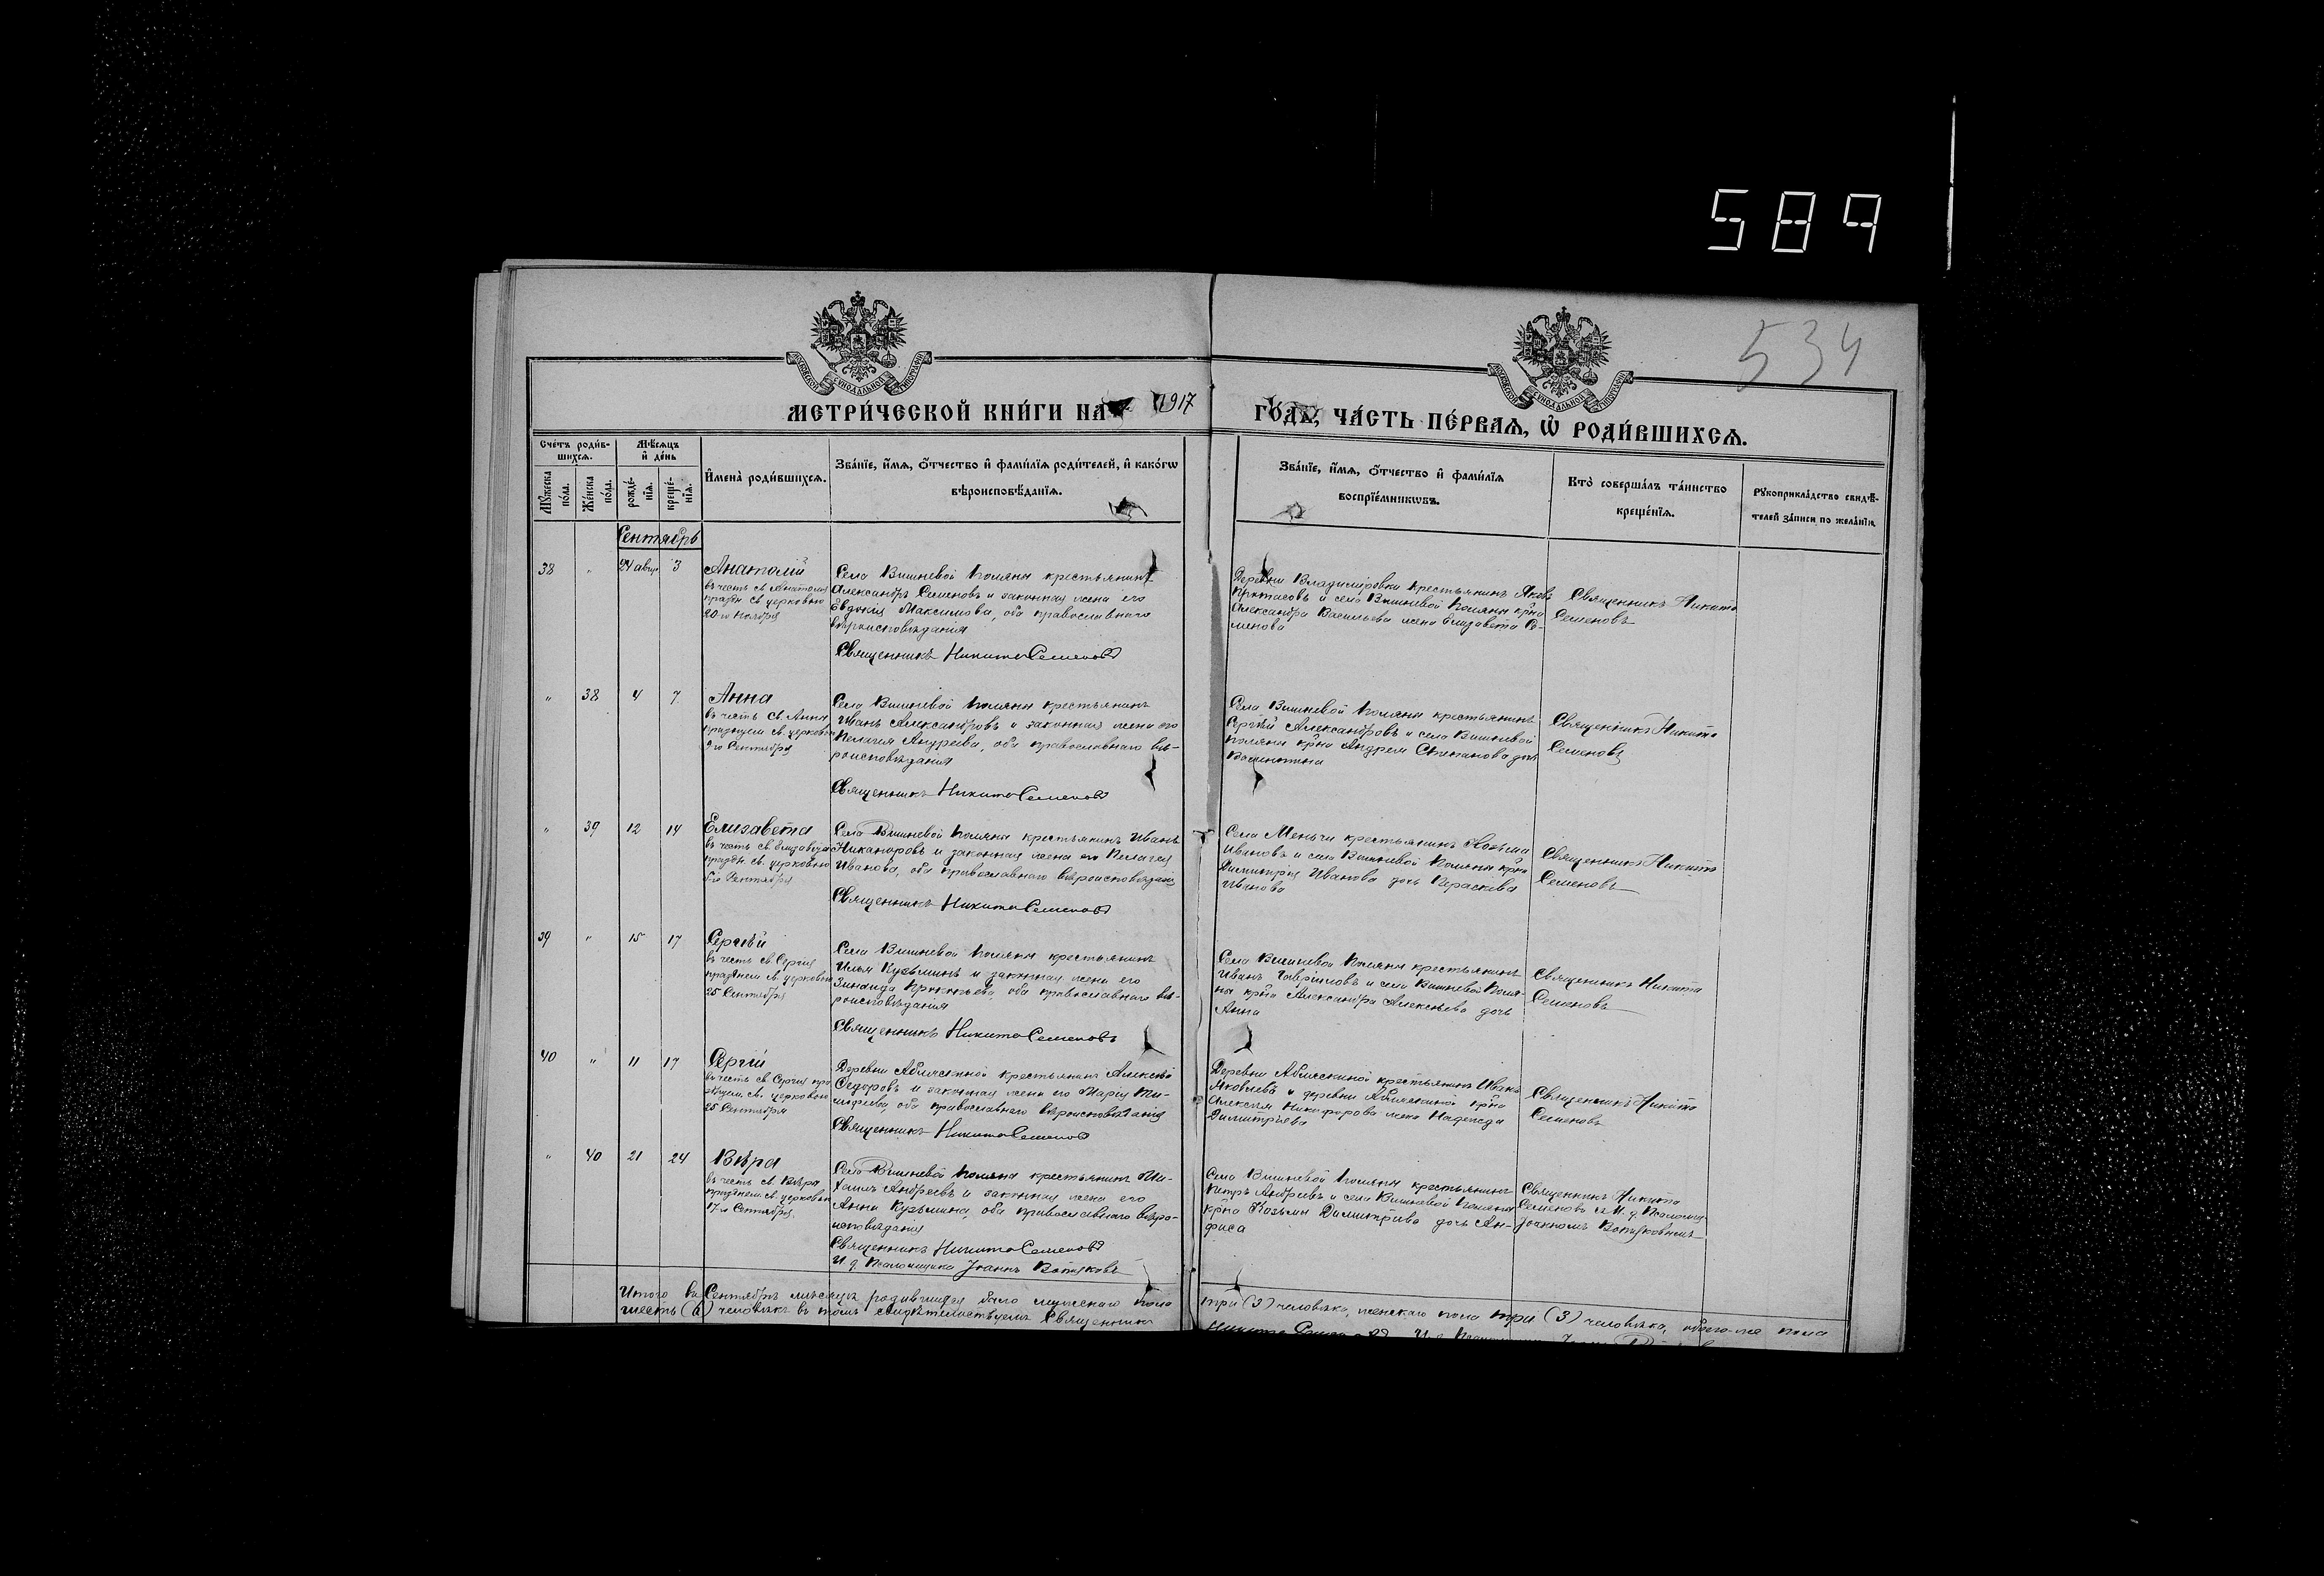 589
534
МОСКОВСКОЙ СѴНОДАЛЬНОЙ ТИПОГРАФІИ
МОСКОВСКОЙ СѴНОДАЛЬНОЙ ТИПОГРАФІИ
МЕТРИ́ЧЕСКОЙ КНИ́ГИ НА 1917
ГО́ДЪ, ЧА́СТЬ ПЕ́РВАѦ, Ѽ РОДИ́ВШИХСѦ.
Сче́тъ роди́в-
шихсѧ.
Мѣ́сѧцъ
и҆ де́нь
Мꙋ́жеска
по́ла.
Же́нска
по́ла.
рожде́-
нїѧ.
креще́-
нїѧ.
И҆мена̀ роди́вшихсѧ.
Зва́нїе, и҆́мѧ, ѻ҆́тчество и҆ фами́лїѧ роди́телей, и҆ како́гѡ
вѣроисповѣ́данїѧ.
Зва́нїе, и҆́мѧ, ѻ҆́тчество и҆ фами́лїѧ
воспрїе́мникѡвъ.
Кто̀ соверша́лъ та́инство
креще́нїѧ.
Рꙋкоприкла́дство свидѣ́-
телей за́писи по жела́нїю.
Сентябрь
38 " 24 авгу. 3 Анатолій
въ честь св. Анатолія
праздн. св. церковью
20-го Ноября
Села Вишневой Поляны крестьянинъ
Александръ Семеновъ и законная жена его
Евдокія Максимова, оба православнаго
вѣроисповѣданія
Священникъ Никита Семеновъ
Деревни Владимировки крестьянинъ Яковъ
и села Вишневой Поляны кр-на
Александра Васильева жена Елизавета Се-
менова
Священникъ Никита
Семеновъ
" 38 4 7 Анна
въ честь св. Анны
празднуем. св. церковью
9-го Сентября
Села Вишневой Поляны крестьянинъ
Иванъ Александровъ и законная жена его
Пелагея Андреева, оба православнаго вѣ-
роисповѣданія
Священникъ Никита Семеновъ
Села Вишневой Поляны крестьянинъ
Сергѣй Александровъ и села Вишневой
Поляны кр-на Андрея Степанова дочь
Валентина
Священникъ Никита
Семеновъ
" 39 12 14 Елизавета
въ честь св. Елизаветы
праздн. св. церковью
5-го Сентября
Села Вишневой Поляны крестьянинъ Иванъ
Никаноровъ и законная жена его Пелагея
Иванова, оба православнаго вѣроисповѣданія
Священникъ Никита Семеновъ
Села Меньчи крестьянинъ Козьма
Ивановъ и села Вишневой Поляны кр-на
Димитрія Иванова дочь Параскева
Иванова
Священникъ Никита
Семеновъ
39 " 15 17 Сергѣй
въ честь св. Сергія
празднем. св. церковью
25 Сентября
Села Вишневой Поляны крестьянинъ
Илья Кузьминъ и законная жена его
Зинаида Прокопьева оба православнаго вѣ-
роисповѣданія
Священникъ Никита Семеновъ
Села Вишневой Поляны крестьянинъ
Иванъ Гавриловъ и села Вишневой Поля-
ны кр-на Александра Алексѣева дочь
Анна
Священникъ Никита
Семеновъ
40 " 11 17 Сергій
въ честь св. Сергія пра
зднуем. св. церковью
25 Сентября
Деревни Абляскиной крестьянинъ Алексѣй
Ѳедоровъ и законная жена его Марія Ти-
моѳеева, оба православнаго вѣроисповѣданія
Священникъ Никита Семеновъ
Деревни Абляскиной крестьянинъ Иванъ
Яковлевъ и деревни Абляскиной кр-на
Алексѣя Никифорова жена Надежда
Димитріева
Священникъ Никита
Семеновъ
" 40 21 24 Вѣра
въ честь св. Вѣра
празднем. св. церковью
17-го Сентября
Села Вишневой Поляны крестьянинъ Ми-
хаилъ Андреевъ и законная жена его
Анна Кузьмина, оба православнаго вѣро-
исповѣданія
Священникъ Никита Семеновъ
И. д. Псаломщика Іоаннъ
Села Вишневой Поляны крестьянинъ
Петръ Андреевъ и села Вишневой Поляны
кр-на Козьмы Димитріева дочь Ан-
фиса
Священникъ Никита
Семеновъ съ И. д. Псаломщ.
Іоанномъ
Итого въ Сентябрѣ мѣсяцѣ родившихся было мужескаго пола
три (3) человѣка, женскаго пола три (3) человѣка, обоего-же пола
шесть (6) человѣкъ въ томъ свидѣтельствуемъ Священникъ